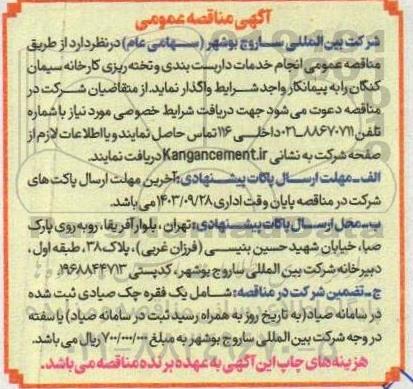 آگهی مناقصه عمومی
شرکت بین المللی ساروج بوشهر (سهامی عام) در نظر دارد از طریق
مناقصه عمومی انجام خدمات داربست بندی و تخته ریزی کارخانه سیمان
کنگان را به پیمانکار واجد شرایط واگذار نماید. از متقاضیان شرکت در
مناقصه دعوت می شود جهت دریافت شرایط خصوصی مورد نیاز با شماره
تلفن ۸۸۶۷۰۷۱۱-۰۲۱ داخلی ۱۱۶ تماس حاصل نمایند و یا اطلاعات لازم از
صفحه شرکت به نشانی Kangancement.ir دریافت نمایند.
الف- مهلت ارسال پاکات پیشنهادی: آخرین مهلت ارسال پاکت های
شرکت در مناقصه پایان وقت اداری ۱۴۰۳/۰۹/۲۸ می باشد.
ب- محل ارسال پاکات پیشنهادی: تهران، بلوار آفریقا، روبه روی پارک
صبا، خیابان شهید حسین بنیسی (فرزان غربی)، پلاک ۳۸، طبقه اول،
دبیرخانه شرکت بین المللی ساروج بوشهر، کدپستی ۱۹۶۸۸۴۴۷۱۳
ج- تضمین شرکت در مناقصه: شامل یک فقره چک صیادی ثبت شده
در سامانه صیاد (به تاریخ روز به همراه رسید ثبت در سامانه صیاد) یا سفته
در وجه شرکت بین المللی ساروج بوشهر به مبلغ ۷۰۰/۰۰۰/۰۰۰ ریال می باشد.
هزینه های چاپ این آگهی به عهده برنده مناقصه می باشد.